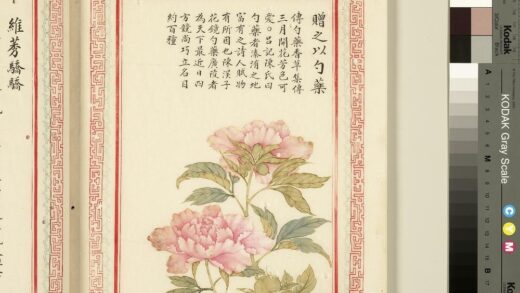 贈之以勺藥
傳勺藥香草集傳
三月開花芳色可
愛○呂記陳氏曰
勺藥者溱洧之地
富有之詩人賦物
有所因也陳淏子
花鏡勺藥廣陵者
為天下最近日四
方競尚巧立名目
約百種
維莠驕驕
Kodak
KODAK Gray Scale
C Y M
A 1 2 3 4 5 6 M 8 9 10 11 12 13 14 15 B